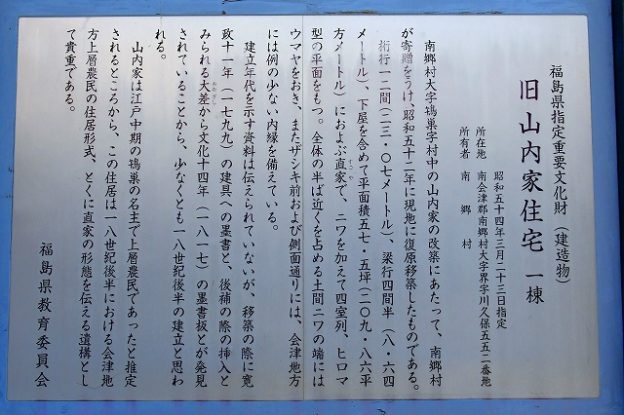 福島県指定重要文化財（建造物）
旧山内家住宅 一棟
昭和五十四年三月二十三日指定
所在地 南会津郡南郷村大字界字川久保五五二番地
所有者 南郷村
南郷村大字鴇巣字村中の山内家の改築にあたって、南郷村
が寄贈をうけ、昭和五十二年に現地に復原移築したものである。
桁行一二間（二三・〇七メートル）、梁行四間半（八・六四
メートル）、下屋を含めて平面積五七・五坪（二〇九・八六平
方メートル）におよぶ直家で、ニワを加えて四室列、ヒロマ
型の平面をもつ。全体の半ば近くを占める土間ニワの端には
ウマヤをおき、またザシキ前および側面通りには、会津地方
には例の少ない内縁を備えている。
建立年代を示す資料は伝えられていないが、移築の際に寛
政十一年（一七九九）の建具への墨書と、後補の際の挿入と
みられる大差から文化十四年（一八一七）の墨書板とが発見
されていることから、少なくとも一八世紀後半の建立と思わ
れる。
山内家は江戸中期の鴇巣の名主で上層農民であったと推定
されるところから、この住居は一八世紀後半における会津地
方上層農民の住居形式、とくに直家の形態を伝える遺構とし
て貴重である。
福島県教育委員会